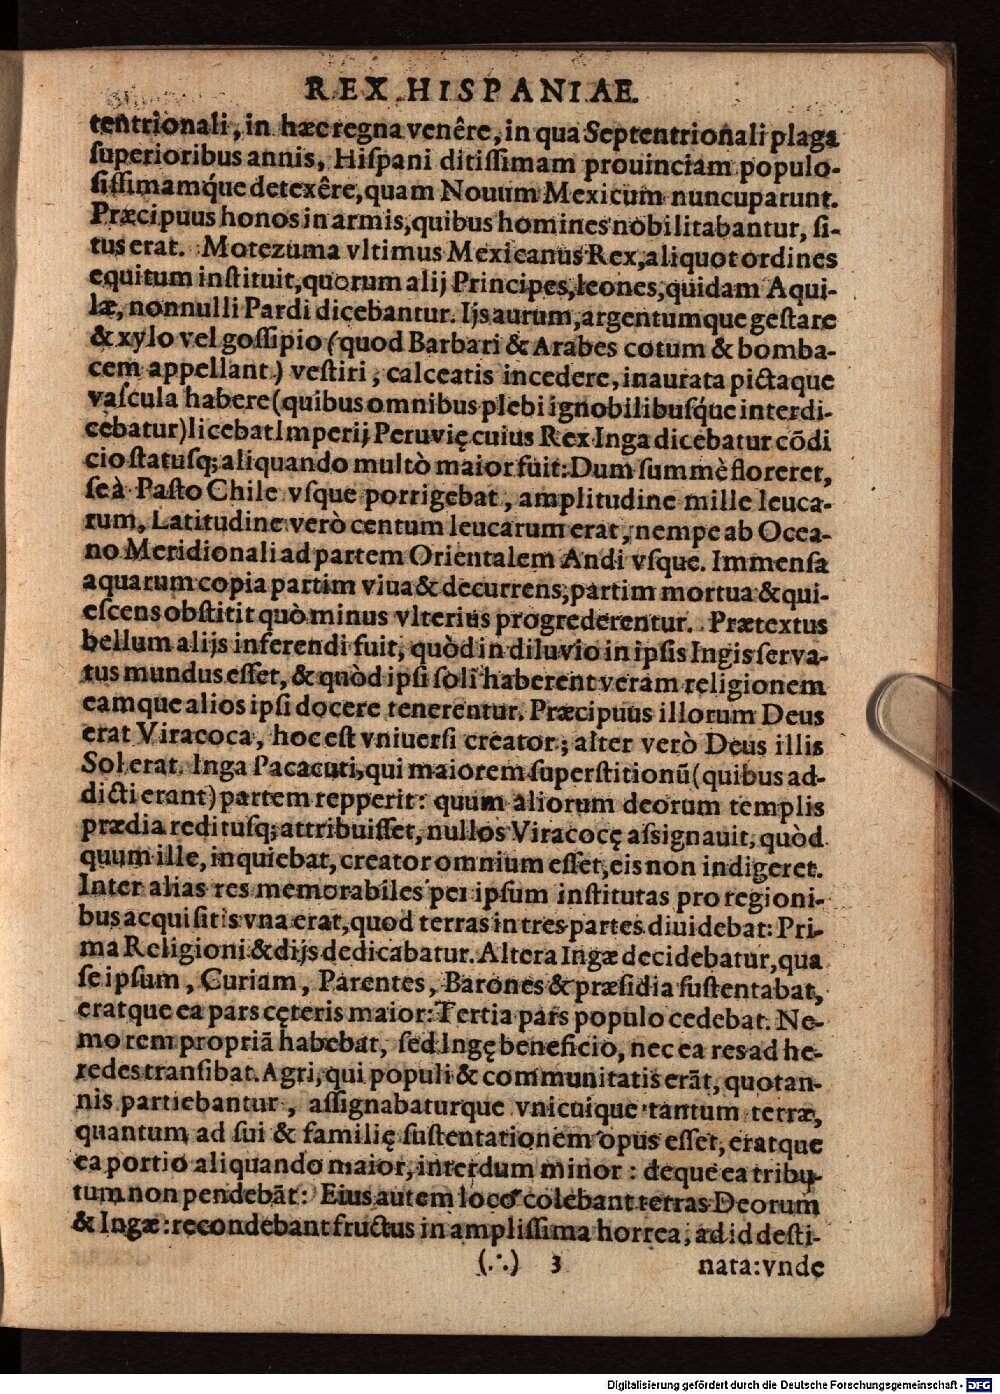 REX HISPANIAE.
tentrionali, in hæc regna venêre, in qua Septentrionali plaga
ſuperioribus annis, Hiſpani ditiſſimam prouinciam populo-
ſiſſimamq́ue detexêre, quam Nouum Mexicum nuncuparunt.
Præcipuus honos in armis, quibus homines nobilitabantur, ſi-
tus erat. Motezuma vltimus Mexicanus Rex, aliquot ordines
equitum inſtituit, quorum alij Principes, leones, quidam Aqui-
læ, nonnulli Pardi dicebantur. Ijs aurum, argentumque geſtare
& xylo vel goſſipio (quod Barbari & Arabes cotum & bomba-
cem appellant) veſtiri, calceatis incedere, inaurata pictaque
vaſcula habere (quibus omnibus plebi ignobilibuſq́ue interdi-
cebatur) licebat Imperij Peruvię cuius Rex Inga dicebatur cõdi
cio ſtatuſq; aliquando multò maior fuit: Dum ſummè floreret,
ſe à Paſto Chile vſque porrigebat, amplitudine mille leuca-
rum, Latitudine verò centum leucarum erat, nempe ab Ocea-
no Meridionali ad partem Orientalem Andi vſque. Immenſa
aquarum copia partim viua & decurrens, partim mortua & qui-
eſcens obſtitit quò minus vlterius progrederentur. Prætextus
bellum alijs inferendi fuit, quòd in diluvio in ipſis Ingis ſerva-
tus mundus eſſet, & quòd ipſi ſoli haberent veram religionem
eamque alios ipſi docere tenerentur. Præcipuus illorum Deus
erat Viracoca, hoc eſt vniuerſi creator; alter verò Deus illis
Sol erat. Inga Pacacuti, qui maiorem ſuperſtitionũ (quibus ad-
dicti erant) partem repperit: quum aliorum deorum templis
prædia redituſq; attribuiſſet, nullos Viracocę aſsignauit, quòd
quum ille, inquiebat, creator omnium eſſet, eis non indigeret.
Inter alias res memorabiles per ipſum inſtitutas pro regioni-
bus acquiſitis vna erat, quod terras in tres partes diuidebat: Pri-
ma Religioni & dijs dedicabatur. Altera Ingæ decidebatur, qua
ſe ipſum, Curiam, Parentes, Barones & præſidia ſuſtentabat,
eratque ea pars cęteris maior: Tertia pars populo cedebat. Ne-
mo rem propriã habebat, ſed Ingę beneficio, nec ea res ad he-
redes tranſibat. Agri, qui populi & communitatis erãt, quotan-
nis partiebantur, aſſignabaturque vnicuique tantum terræ,
quantum ad ſui & familię ſuſtentationem opus eſſet, eratque
ea portio aliquando maior, interdum minor: deque ea tribu-
tum non pendebãt: Eius autem loco colebant terras Deorum
& Ingæ: recondebant fructus in ampliſſima horrea, ad id deſti-
(∴) 3 nata: vnde
Digitalisierung gefördert durch die Deutsche Forschungsgemeinschaft - DFG